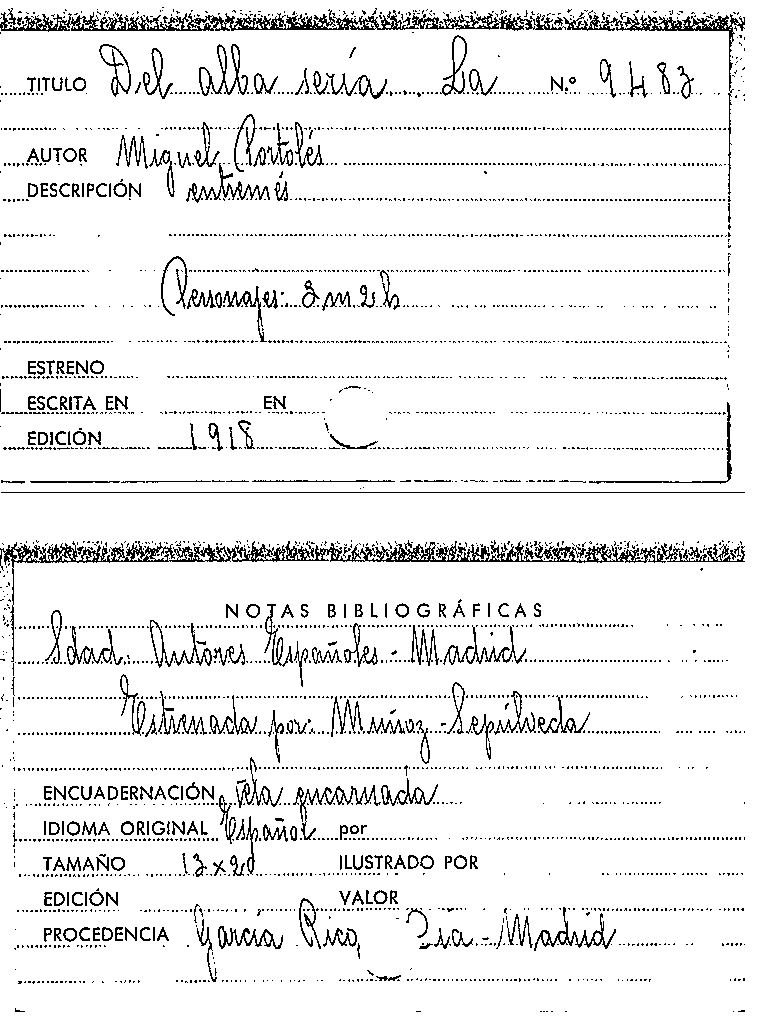 TITULO Del alba sería... La N.º 9483
AUTOR Miguel Portolés
DESCRIPCIÓN entremés
Personajes: 3 m 2 h
ESTRENO
ESCRITA EN EN
EDICIÓN 1918
NOTAS BIBLIOGRÁFICAS
Sdad. Autores Españoles - Madrid
Estrenada por: Muñoz - Sepúlveda
ENCUADERNACIÓN tela encarnada
IDIOMA ORIGINAL Español por
TAMAÑO 13 x 20 ILUSTRADO POR
EDICIÓN VALOR
PROCEDENCIA García Rico, - Madrid